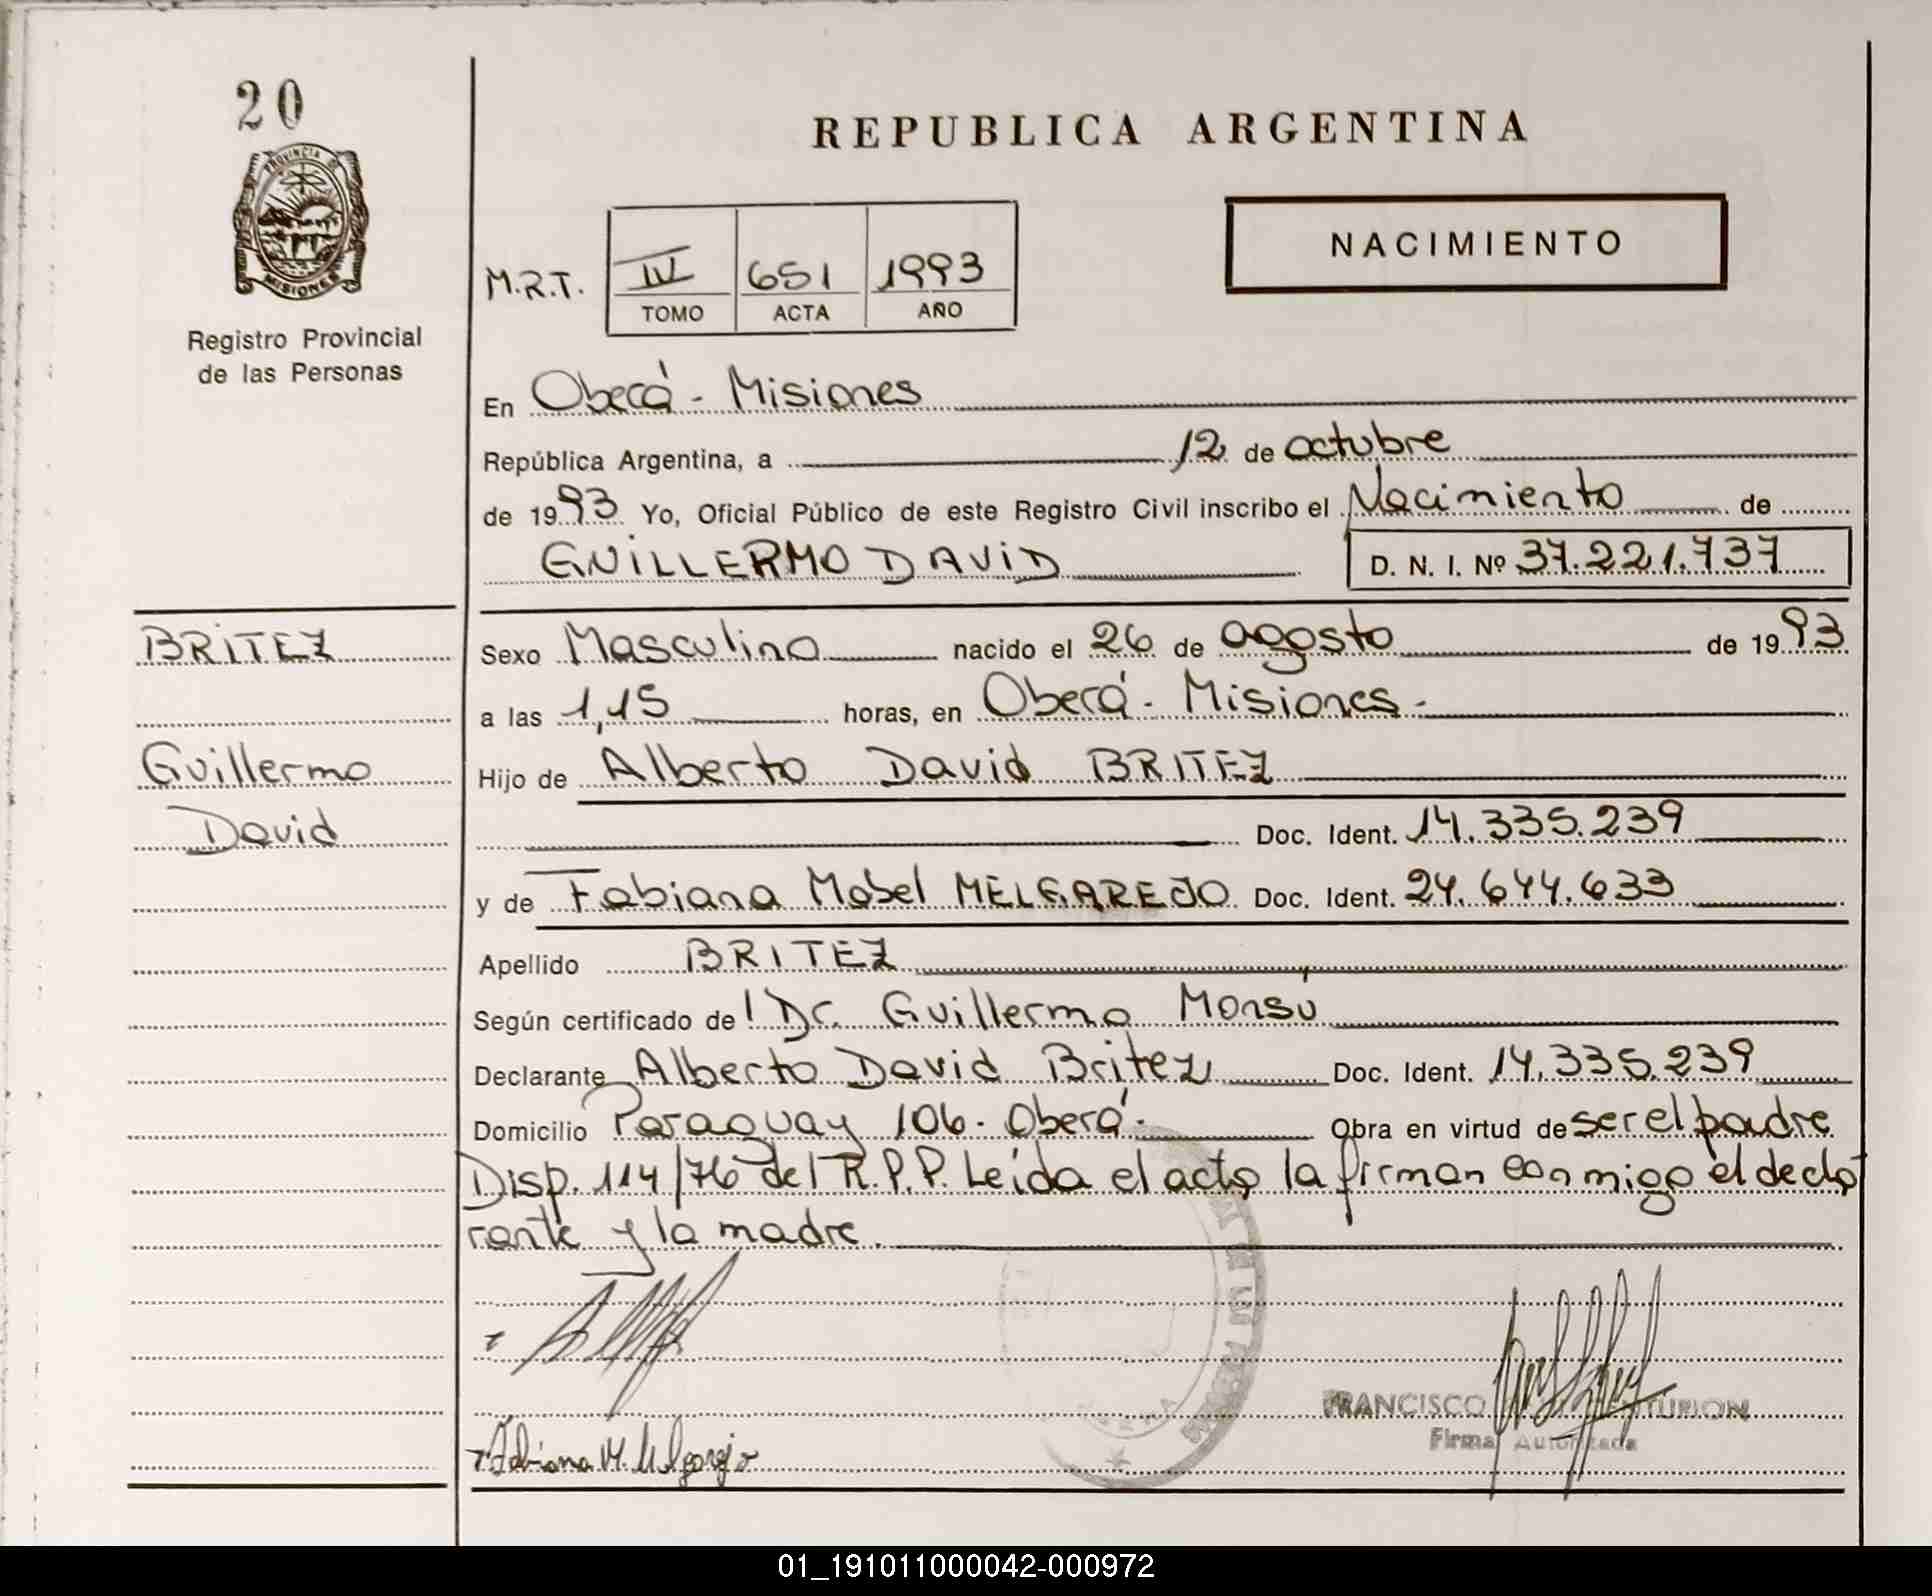 20
PROVINCIA D
MISIONES
Registro Provincial
de las Personas
REPUBLICA ARGENTINA
NACIMIENTO
M.R.T.
IV 651 1993
TOMO ACTA AÑO
En Oberá - Misiones
República Argentina, a 12 de octubre
de 1993 Yo, Oficial Público de este Registro Civil inscribo el Nacimiento de
GUILLERMO DAVID D. N. I. Nº 37.221.737
BRITEZ
Guillermo
David
Sexo Masculino nacido el 26 de agosto de 1993
a las 1,15 horas, en Oberá - Misiones.
Hijo de Alberto David BRITEZ
Doc. Ident. 14.335.239
y de Fabiana Mabel MELGAREJO Doc. Ident. 24.644.633
Apellido BRITEZ
Según certificado del Dr. Guillermo Monsú
Declarante Alberto David Britez Doc. Ident. 14.335.239
Domicilio Paraguay 106. Oberá. Obra en virtud de ser el padre
Disp. 114/76 del R.P.P. Leída el acta la firman conmigo el decla
rante y la madre.
Fabiana M. Melgarejo
FRANCISCO TURION
Firma Autorizada
01_191011000042-000972